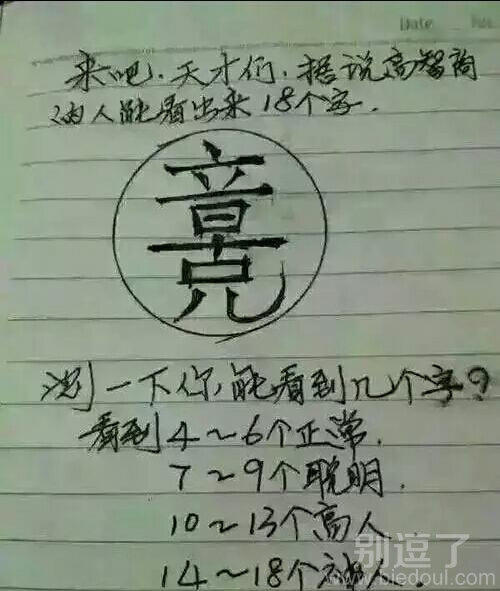 Date No.
来吧.天才们.据说高智商
的人能看出来18个字.
测一下你能看到几个字?
看到4~6个正常.
7~9个聪明.
10~13个高人
14~18个神人.
别逗了
www.biedoul.com